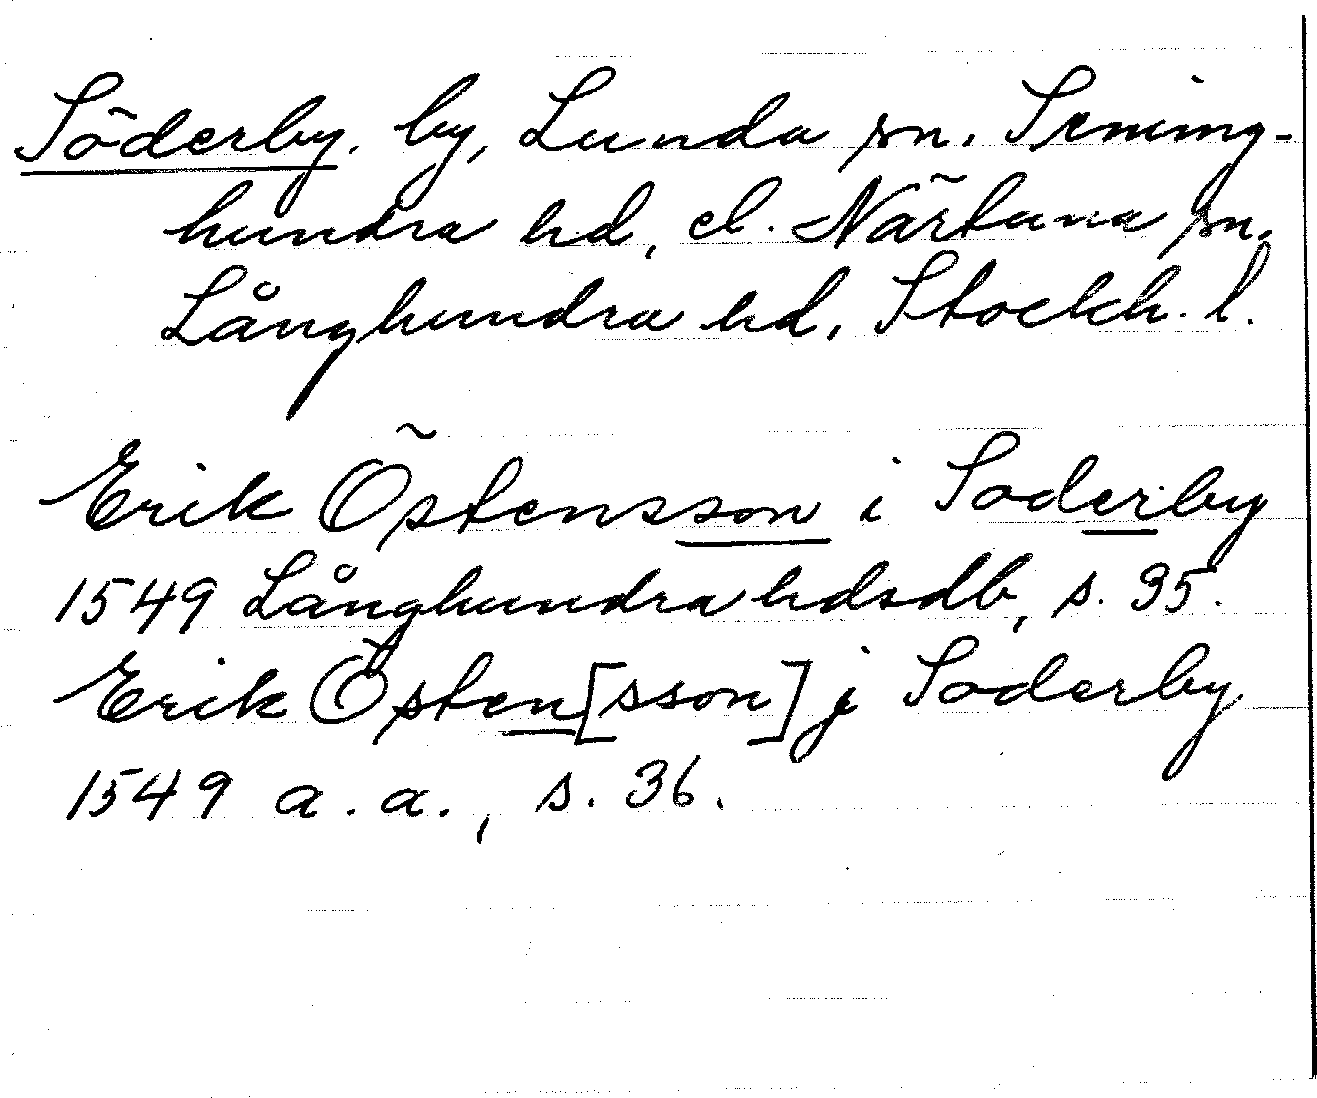 Söderby. by, Lunda sn. Seming-
hundra hd, el. Närtuna sn.
Långhundra hd, Stockh. l.
Erik Östensson i Soderby
1549 Långhundra hdsdb, s. 35.
Erik Östen[sson] j Soderby
1549 a.a., s. 36.